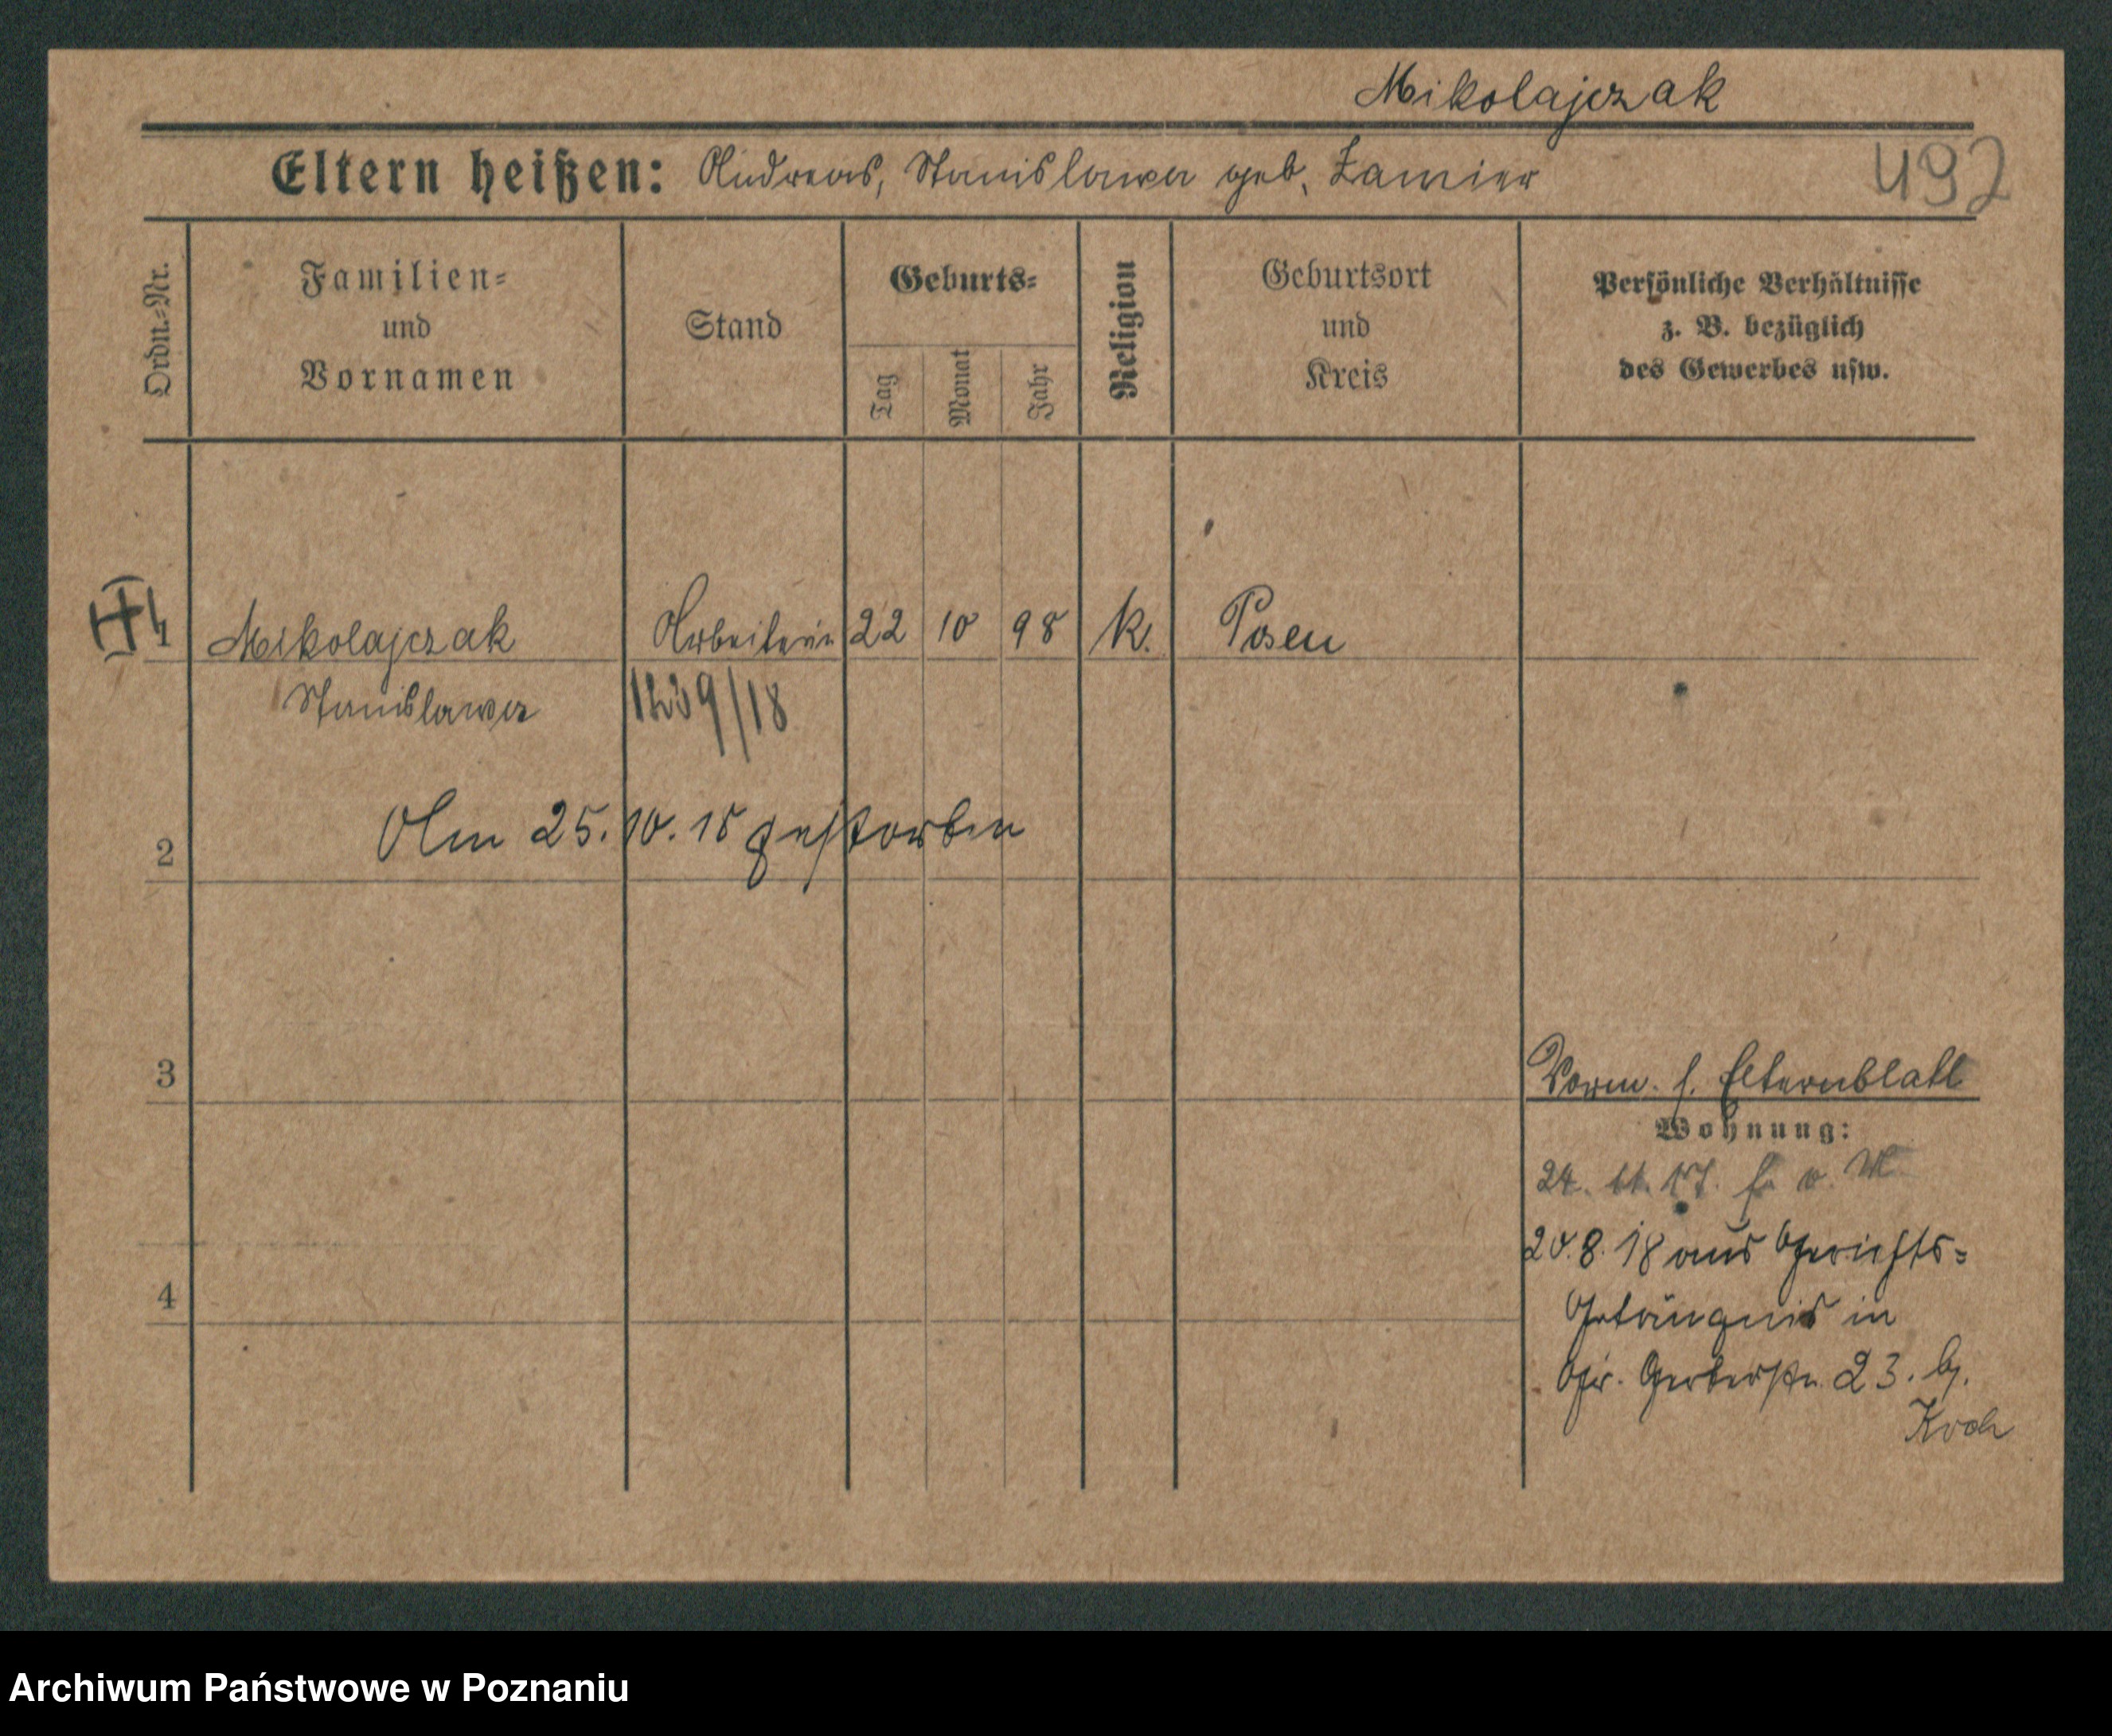 Mikolajczak
Eltern heißen: Andreas, Stanislawa geb. Zamier
492
Ordn.-Nr.
Familien-
und
Vornamen
Stand
Geburts-
Tag
Monat
Jahr
Religion
Geburtsort
und
Kreis
Persönliche Verhältnisse
z. B. bezüglich
des Gewerbes usw.
1 Mikolajczak Arbeiterin 22 10 98 k. Posen
Stanislawa 1239/18
Am 25.10.18 gestorben
2
3
Vorm. s. Elternblatt
Wohnung:
24. 11. 17.
20.8.18 aus Gerichts-
Gefängnis in
Gr. Gerberstr. 23. b.
Koch
4
Archiwum Państwowe w Poznaniu